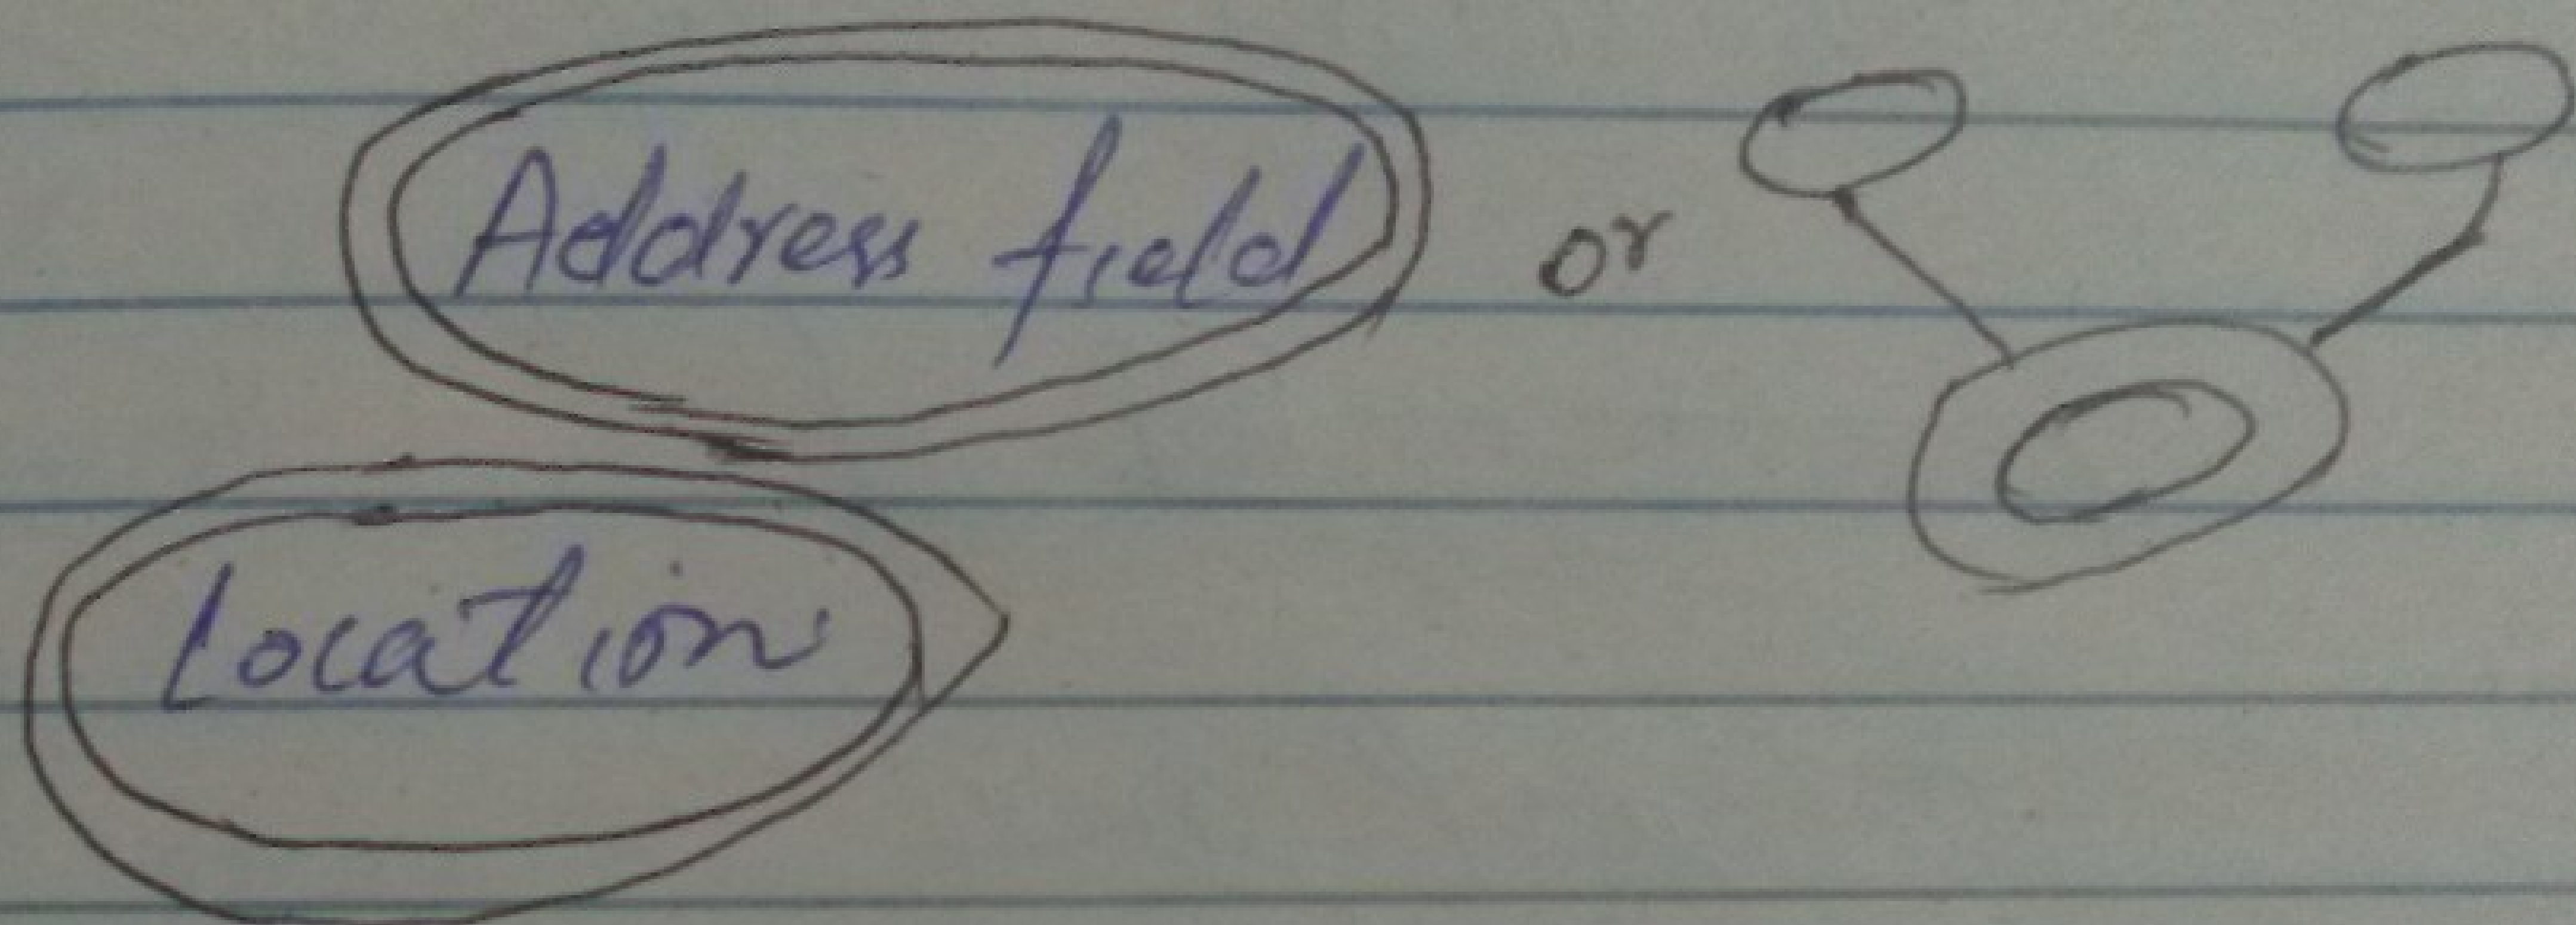 Address field or
Location